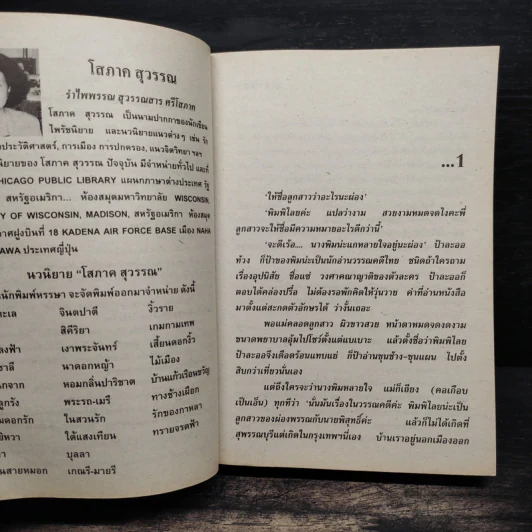 โสภาค สุวรรณ
รำไพพรรณ สุวรรณสาร ศรีโสภาค
โสภาค สุวรรณ เป็นนามปากกาของนักเขียน
ไพรัชนิยาย และนวนิยายแนวต่างๆ เช่น รัก
ประวัติศาสตร์, การเมือง การปกครอง, แนวจิตวิทยา ฯลฯ
นิยายของ โสภาค สุวรรณ ปัจจุบัน มีจำหน่ายทั่วไป และที่
CHICAGO PUBLIC LIBRARY แผนกภาษาต่างประเทศ รัฐ
สหรัฐอเมริกา... ห้องสมุดมหาวิทยาลัย WISCONSIN,
OF WISCONSIN, MADISON, สหรัฐอเมริกา ห้องสมุด
กาศฝูงบินที่ 18 KADENA AIR FORCE BASE เมือง NAHA
AWA ประเทศญี่ปุ่น
นวนิยาย "โสภาค สุวรรณ"
นักพิมพ์พรรษา จะจัดพิมพ์ออกมาจำหน่าย ดังนี้
ทะเล จินตปาตี งิ้วราย
สิคีริยา เกมกามเทพ
ลงฟ้า เงาพระจันทร์ เสี้ยนดอกงิ้ว
ชาลี นาคอกหญ้า ไม้เมือง
นกจาก หอมกลิ่นปาริชาต บ้านแก้วเรือนขวัญ
ลูกรัง พระรถ-เมรี ทางช้างเผือก
มดอกรัก ในสวนรัก รักของกาหลา
จิหวา ใต้แสงเทียน ทรายจรดฟ้า
ลา บุลลา
นสายหมอก เกณรี-มายรี
...1
'ให้ชื่อลูกสาวว่าอะไรนะผ่อง'
'พิมพิไลยค่ะ แปลว่างาม สวยงามหมดจดไงคะพี่
ลูกสาวจะให้ชื่อมีความหมายอะไรดีกว่านี้'
'จะดีเร้อ.... นางพิมน่ะแกหลายใจอยู่นะผ่อง' ป้าละออ
ท้วง ก็ป้าของพิมน่ะเป็นนักอ่านวรรณคดีไทย ชนิดถ้าใครถาม
เรื่องอุปนิสัย ชื่อแซ่ วงศาคณาญาติของตัวละคร ป้าละออก็
ตอบได้คล่องปรื๋อ ไม่ต้องรอพักคิดให้วุ่นวาย ค่าที่อ่านหนังสือ
มาตั้งแต่สะกดตัวอักษรได้ ว่างั้นเถอะ
พอแม่คลอดลูกสาว ผิวขาวสวย หน้าตาหมดจดงดงาม
ขนาดพยาบาลอุ้มไปโชว์ตั้งแต่แบเบาะ แล้วตั้งชื่อว่าพิมพิไลย
ป้าละออจึงเดือดร้อนแทบแย่ ก็ป้าอ่านขุนช้าง-ขุนแผน ไปตั้ง
สิบกว่าเที่ยวนั่นเอง
แต่ถึงใครจะว่านางพิมหลายใจ แม่ก็เถียง (คอเกือบ
เป็นเอ็น) ทุกทีว่า 'นั่นมันเรื่องในวรรณคดีค่ะ พิมพิไลยน่ะเป็น
ลูกสาวของผ่องพรรณกับนายพิสุทธิ์ค่ะ แล้วก็ไม่ได้เกิดที่
สุพรรณบุรีแต่เกิดในกรุงเทพฯนี่เอง บ้านเราอยู่นอกเมืองออก